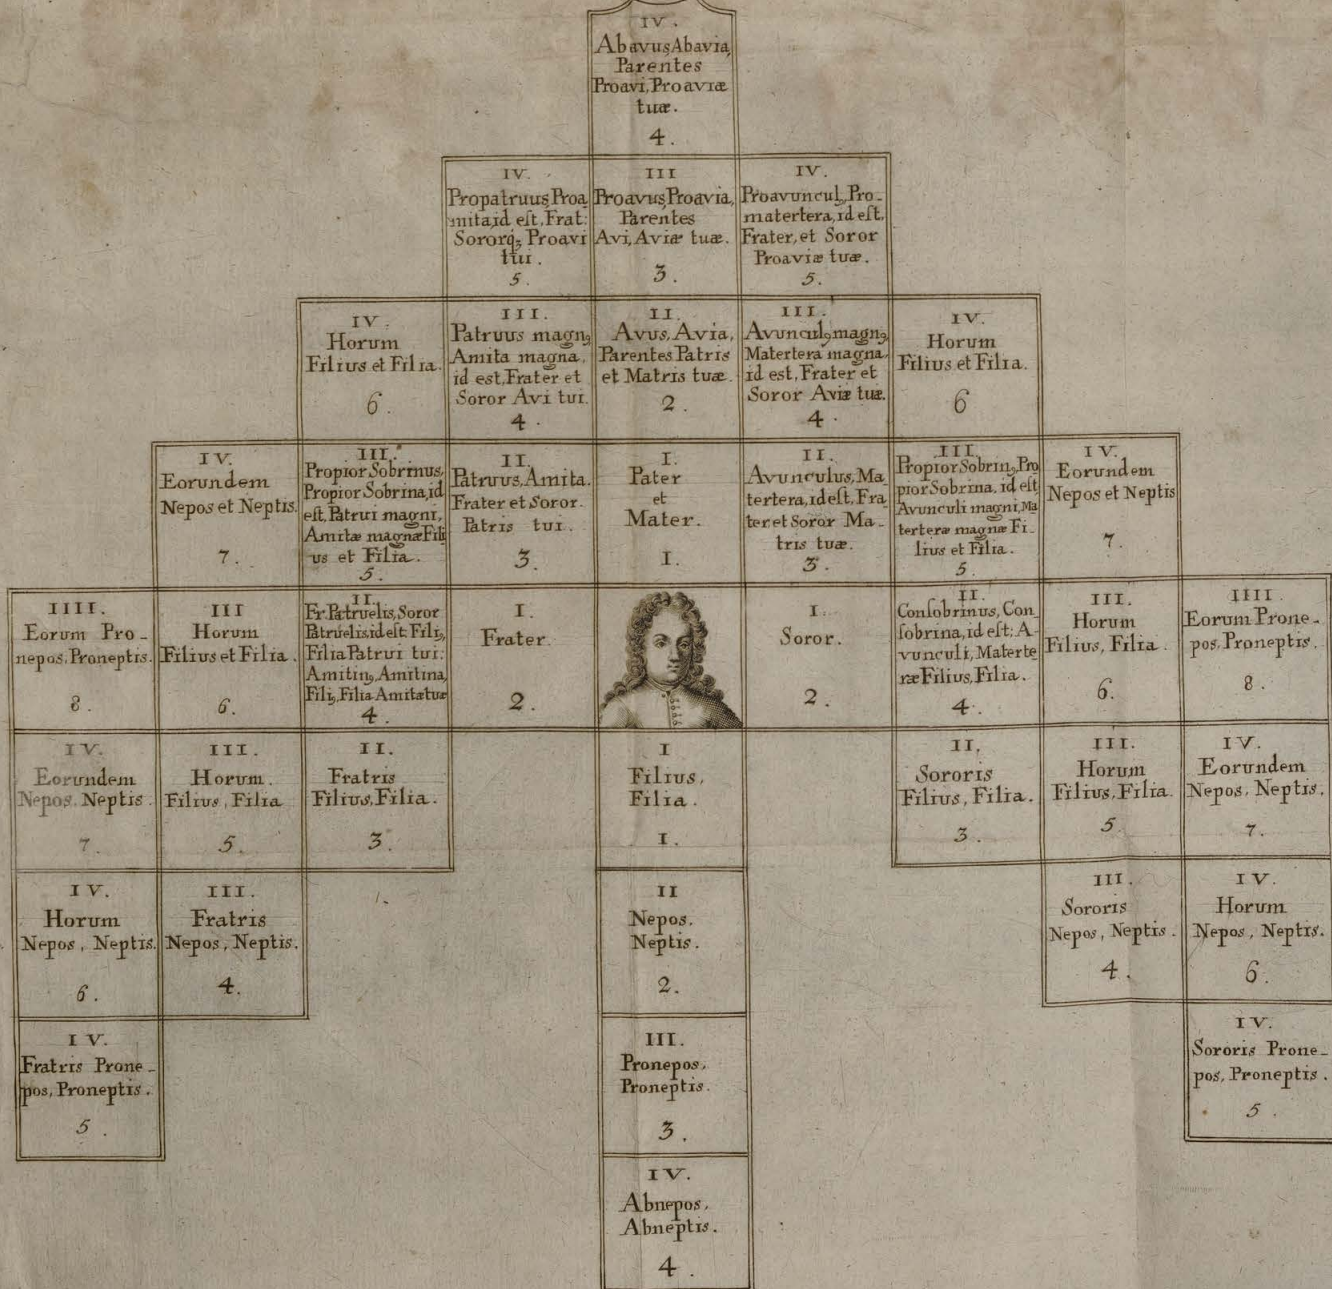 IV.
Abavus, Abavia,
Parentes
Proavi, Proaviæ
tuæ.
4.
IV.
Propatruus, Proa
mita, id eſt, Frat:
Sororq; Proavi
tui.
5.
III
Proavus, Proavia,
Parentes
Avi, Aviæ tuæ.
3.
IV.
Proavuncul9, Pro-
matertera, id eſt,
Frater, et Soror
Proaviæ tuæ.
5.
IV.
Horum
Filius et Filia.
6.
III.
Patruus magn9
Amita magna,
id est, Frater et
Soror Avi tui.
4.
II.
Avus, Avia,
Parentes Patris
et Matris tuæ.
2.
III.
Avuncul9 magn9,
Matertera magna,
id est, Frater et
Soror Aviæ tuæ.
4.
IV.
Horum
Filius et Filia.
6
IV.
Eorundem
Nepos et Neptis.
7.
III.
Propior Sobrinus,
Propior Sobrina, id
eſt, Patrui magni,
Amitæ magnæ Fili
us et Filia.
5.
II.
Patruus, Amita.
Frater et Soror.
Patris tui.
3.
I.
Pater
et
Mater.
I.
II.
Avunculus, Ma-
tertera, id eſt, Fra
ter et Soror Ma-
tris tuæ.
3.
III.
Propior Sobrin9, Pro
pior Sobrina, id eſt
Avunculi magni, Ma
terteræ magnæ Fi-
lius et Filia.
5.
IV.
Eorundem
Nepos et Neptis
7.
IIII.
Eorum Pro-
nepos, Proneptis.
8.
III
Horum
Filius et Filia.
6.
II.
Fr. Patruelis, Soror
Patruelis, id eſt: Fili9,
Filia Patrui tui:
Amitin9, Amitina,
Fili9, Filia Amitæ tuæ
4.
I.
Frater.
2.
I.
Soror.
2.
II.
Conſobrinus, Con
ſobrina, id eſt: A-
vunculi, Materte
ræ Filius, Filia.
4.
III.
Horum
Filius, Filia.
6.
IIII.
Eorum Prone-
pos, Proneptis.
8.
IV.
Eorundem
Nepos, Neptis.
7.
III.
Horum.
Filius, Filia
5.
II.
Fratris
Filius, Filia.
3.
I
Filius,
Filia.
I.
II.
Sororis
Filius, Filia.
3.
III.
Horum
Filius, Filia.
5
IV.
Eorundem
Nepos, Neptis.
7.
IV.
Horum
Nepos, Neptis.
6.
III.
Fratris
Nepos, Neptis.
4.
II
Nepos.
Neptis.
2.
III.
Sororis
Nepos, Neptis.
4.
IV.
Horum
Nepos, Neptis.
6.
IV.
Fratris Prone-
pos, Proneptis.
5.
III.
Pronepos,
Proneptis.
3.
IV.
Sororis Prone-
pos, Proneptis.
5.
IV.
Abnepos,
Abneptis.
4.